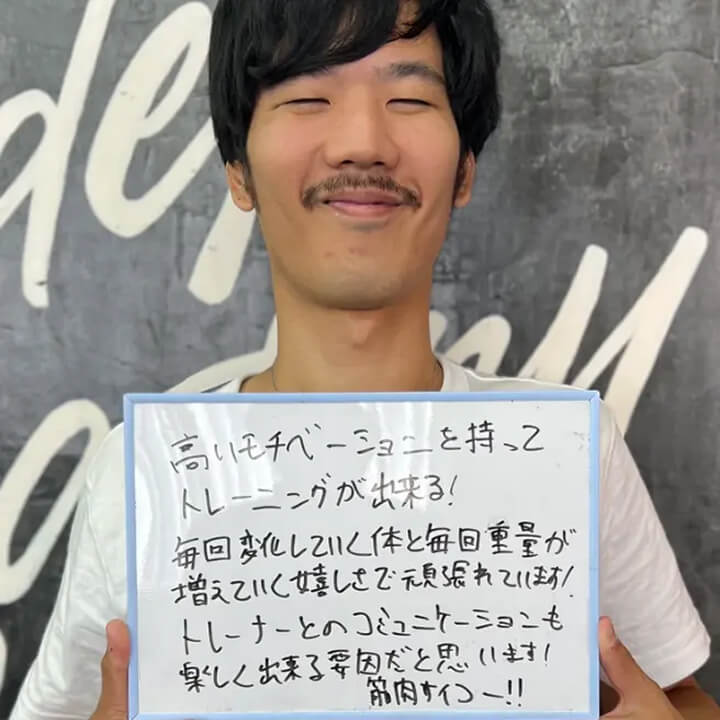 高いモチベーションを持って
トレーニングが出来る!
毎回変化していく体と毎回重量が
増えていく嬉しさで頑張れています!
トレーナーとのコミュニケーションも
楽しく出来る要因だと思います!
筋肉サイコー!!